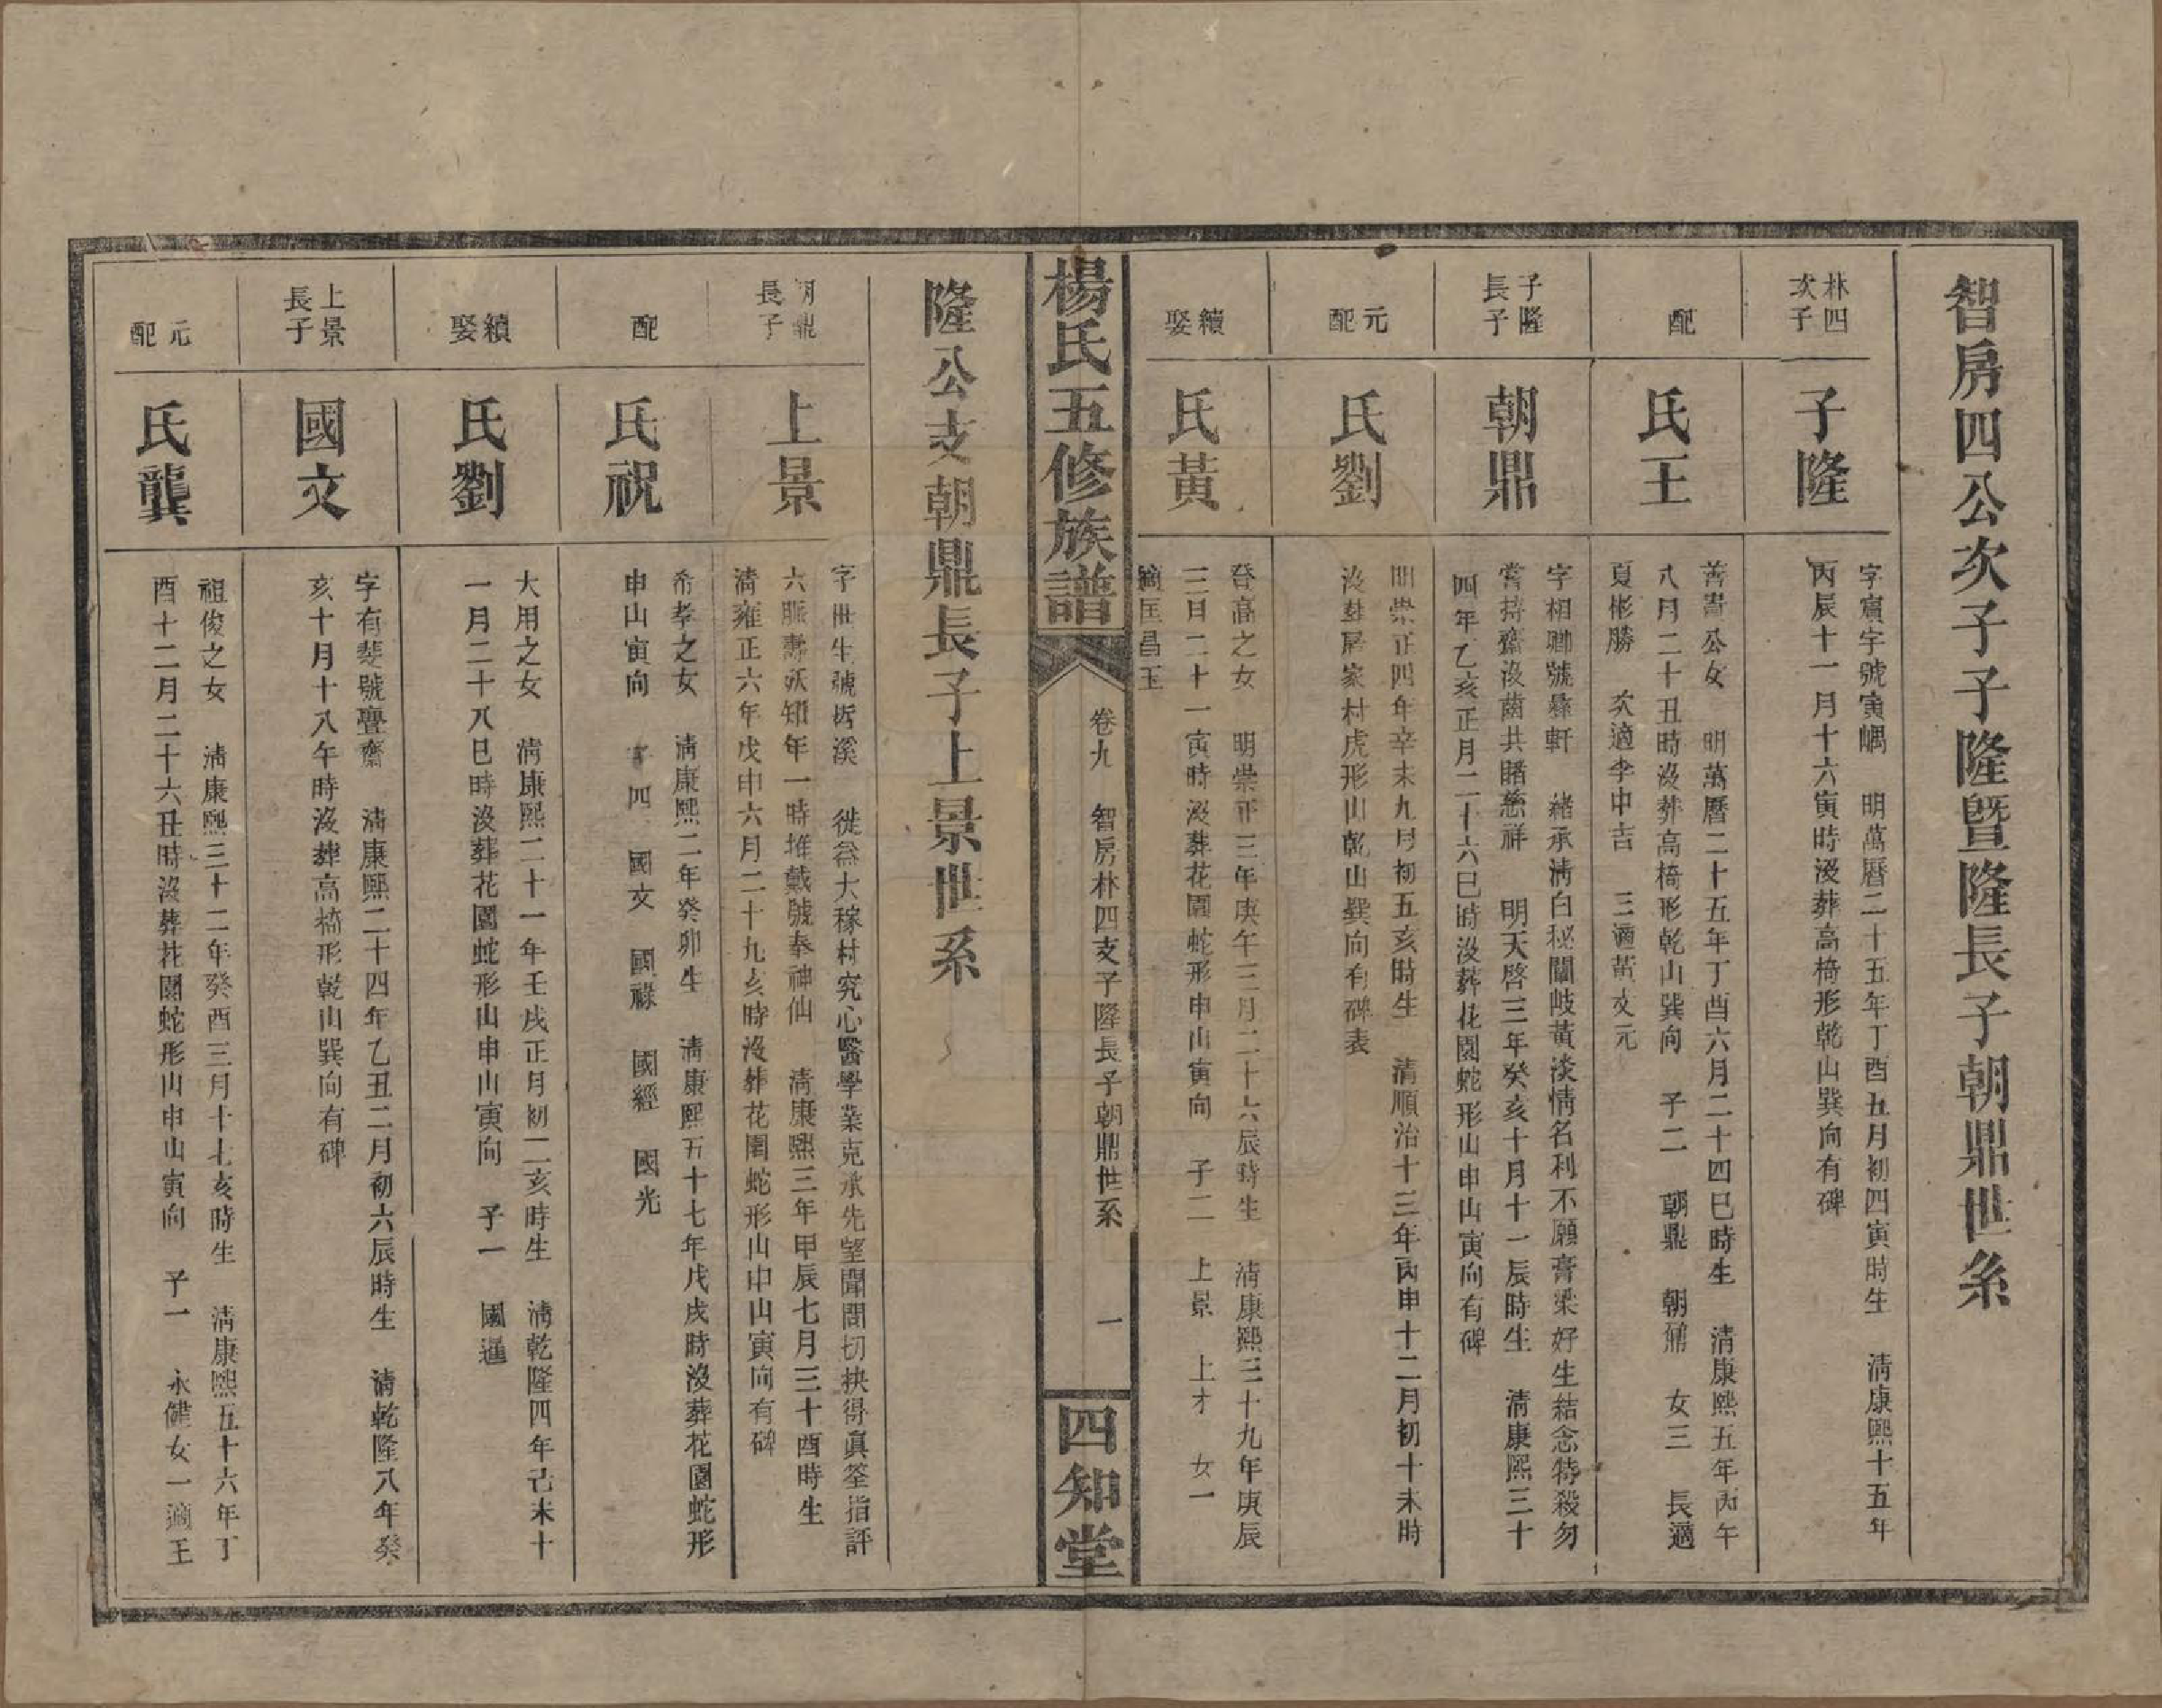 智房四公次子子隆暨隆長子朝鼎世系
林四次子
子隆
字賓字號寅嵎　明萬曆二十五年丁酉五月初四寅時生　清康熙十五年
丙辰十一月十六寅時沒葬高椅形乾山巽向有碑
配
氏王
善耆公女　明萬曆二十五年丁酉六月二十四巳時生　清康熙五年丙午
八月二十丑時沒葬高椅形乾山巽向　子二　朝鼎　朝鼐　女三　長適
夏彬勝　次適李中吉　三適黃文元
子隆長子
朝鼎
字相卿號彝軒　緒承清白秘闡岐黃淡情名利不願膏粱好生結念特殺勿
嘗持齋沒茵共睹慈祥　明天啓三年癸亥十月十一辰時生　清康熙三十
四年乙亥正月二十六巳時沒葬花園蛇形山申山寅向有碑
元配
氏劉
明崇正四年辛未九月初五亥時生　清順治十三年丙申十二月初十未時
沒葬屠家村虎形山乾山巽向有碑表
續娶
氏黃
登高之女　明崇正三年庚午三月二十六辰時生　清康熙三十九年庚辰
三月二十一寅時沒葬花園蛇形申山寅向　子二　上景　上才　女一
適匡昌玉
楊氏五修族譜
卷九　智房林四支子隆長子朝鼎世系
一
四知堂
隆公支朝鼎長子上景世系
朝鼎長子
上景
字世生號哲溪　徙益大稼村究心醫學業克承先望聞問切抉得眞筌指評
六脈壽妖知年一時堆戴號奉神仙　清康熙三年甲辰七月三十酉時生
清雍正六年戊申六月二十九亥時沒葬花園蛇形山申山寅向有碑
配
氏祝
希孝之女　清康熙二年癸卯生　清康熙五十七年戊戌時沒葬花園蛇形
申山寅向　子四　國文　國祿　國經　國光
續娶
氏劉
大用之女　清康熙二十一年壬戌正月初二亥時生　清乾隆四年己未十
一月二十八巳時沒葬花園蛇形山申山寅向　子一　國暹
上景長子
國文
字有斐號亹齋　清康熙二十四年乙丑二月初六辰時生　清乾隆八年癸
亥十月十八午時沒葬高椅形乾山巽向有碑
元配
氏龔
祖俊之女　清康熙三十二年癸酉三月十七亥時生　清康熙五十六年丁
酉十二月二十六丑時沒葬花園蛇形山申山寅向　子一　永健女一適王